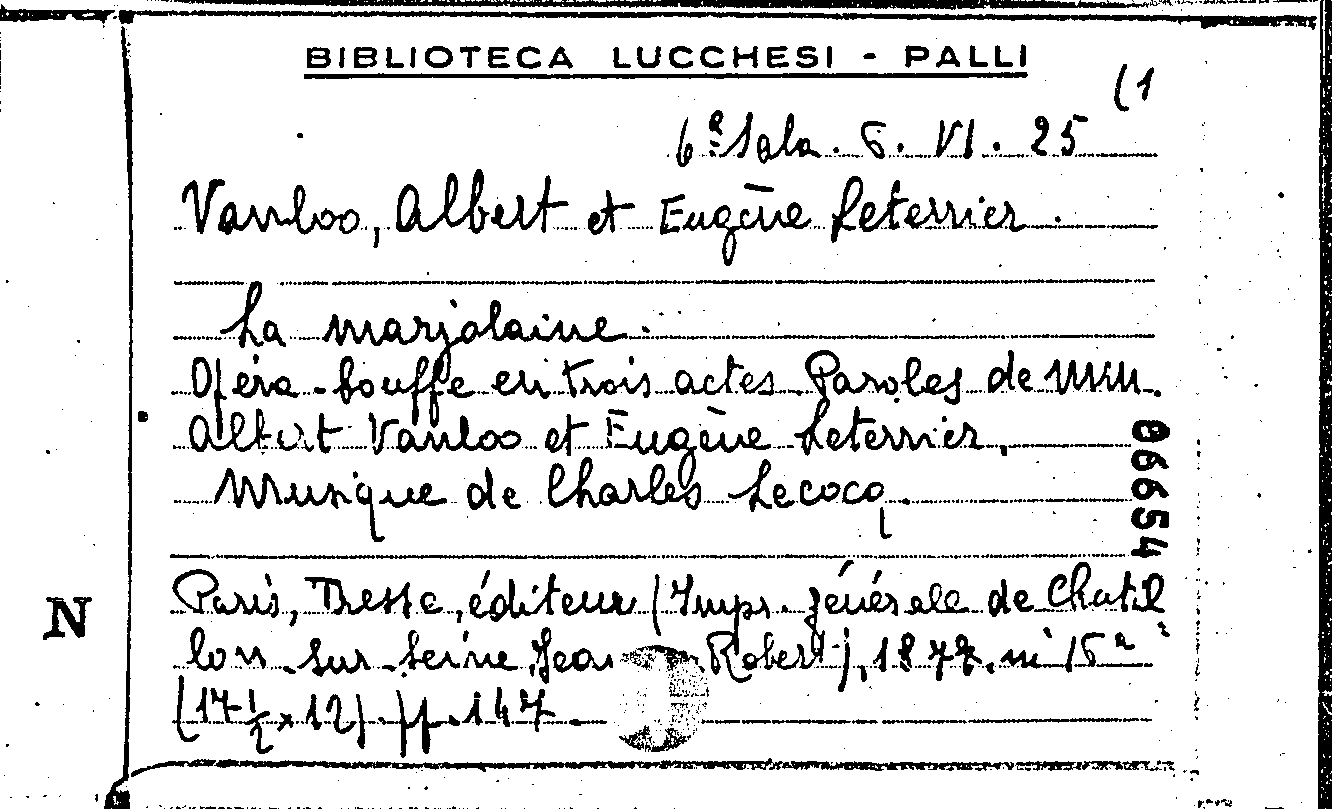 BIBLIOTECA LUCCHESI - PALLI
(1
6ª Sala. 6. VI. 25
Vanloo, Albert et Eugène Leterrier.
La marjolaine.
Opéra-bouffe en trois actes. Paroles de MM.
Albert Vanloo et Eugène Leterrier,
Musique de Charles Lecocq.
06654
Paris, Tresse, éditeur (Impr. générale de Chatil
N
lon-sur-Seine, Robert), 1877. in 16º
(17 ½ x 12). pp. 147.